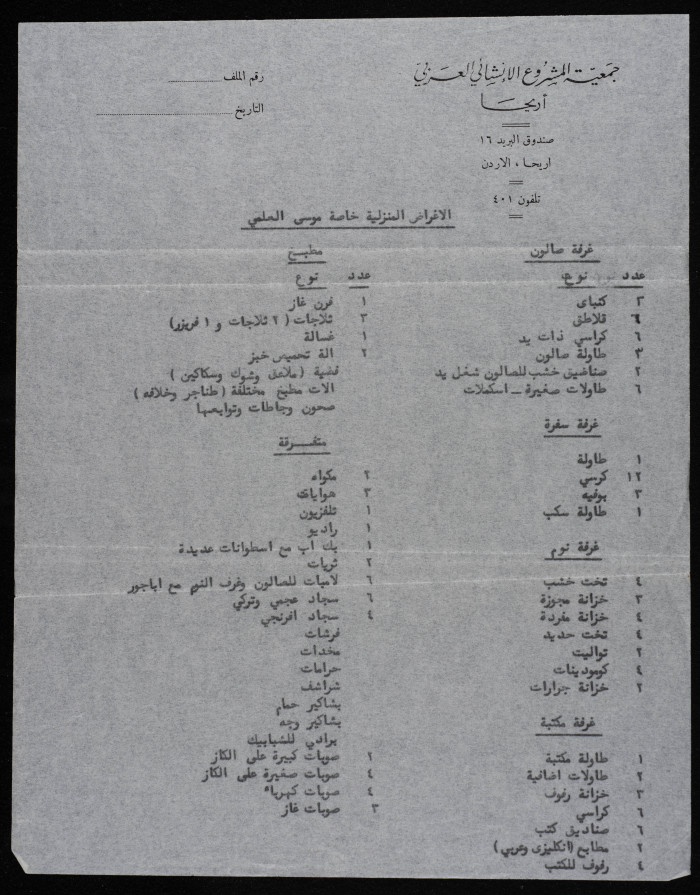 جمعية المشروع الإنشائي العربي
أريحا
صندوق البريد ١٦
اريحا ، الاردن
تلفون ٤٠١
رقم الملف
التاريخ
الاغراض المنزلية خاصة موسى العلمي
غرفة صالون
عدد نوع
٣ كنباى
٦ قلاطق
٦ كراسي ذات يد
٣ طاولة صالون
٢ صناديق خشب للصالون شغل يد
٦ طاولات صغيرة ــ اسكملات
غرفة سفرة
١ طاولة
١٢ كرسي
٣ بوفيه
١ طاولة سكب
غرفة نوم
٤ تخت خشب
٣ خزانة مجوزة
٤ خزانة مفردة
٤ تخت حديد
٢ تواليت
٤ كومودينات
٢ خزانة جرارات
غرفة مكتبة
١ طاولة مكتبة
٢ طاولات اضافية
٣ خزانة رفوف
٦ كراسي
٦ صناديق كتب
٢ مطابع (انكليزى وعربي)
٤ رفوف للكتب
مطبخ
عدد نوع
١ فرن غاز
٣ ثلاجات (٢ ثلاجات و ١ فريزر)
١ غسالة
٢ الة تحميص خبز
فضية (ملاعق وشوك وسكاكين)
الات مطبخ مختلفة (طناجر وخلافه)
صحون وجاطات وتوابعها
متفرقة
٢ مكواه
٣ هوايات
١ تلفزيون
١ راديو
١ بك اب مع اسطوانات عديدة
٢ ثريات
٦ لامبات للصالون وغرف النوم مع اباجور
٦ سجاد عجمي وتركي
٤ سجاد افرنجي
فرشات
مخدات
حرامات
شراشف
بشاكير حمام
بشاكير وجه
برادي للشبابيك
٢ صوبات كبيرة على الكاز
٤ صوبات صغيرة على الكاز
٤ صوبات كهرباء
٣ صوبات غاز